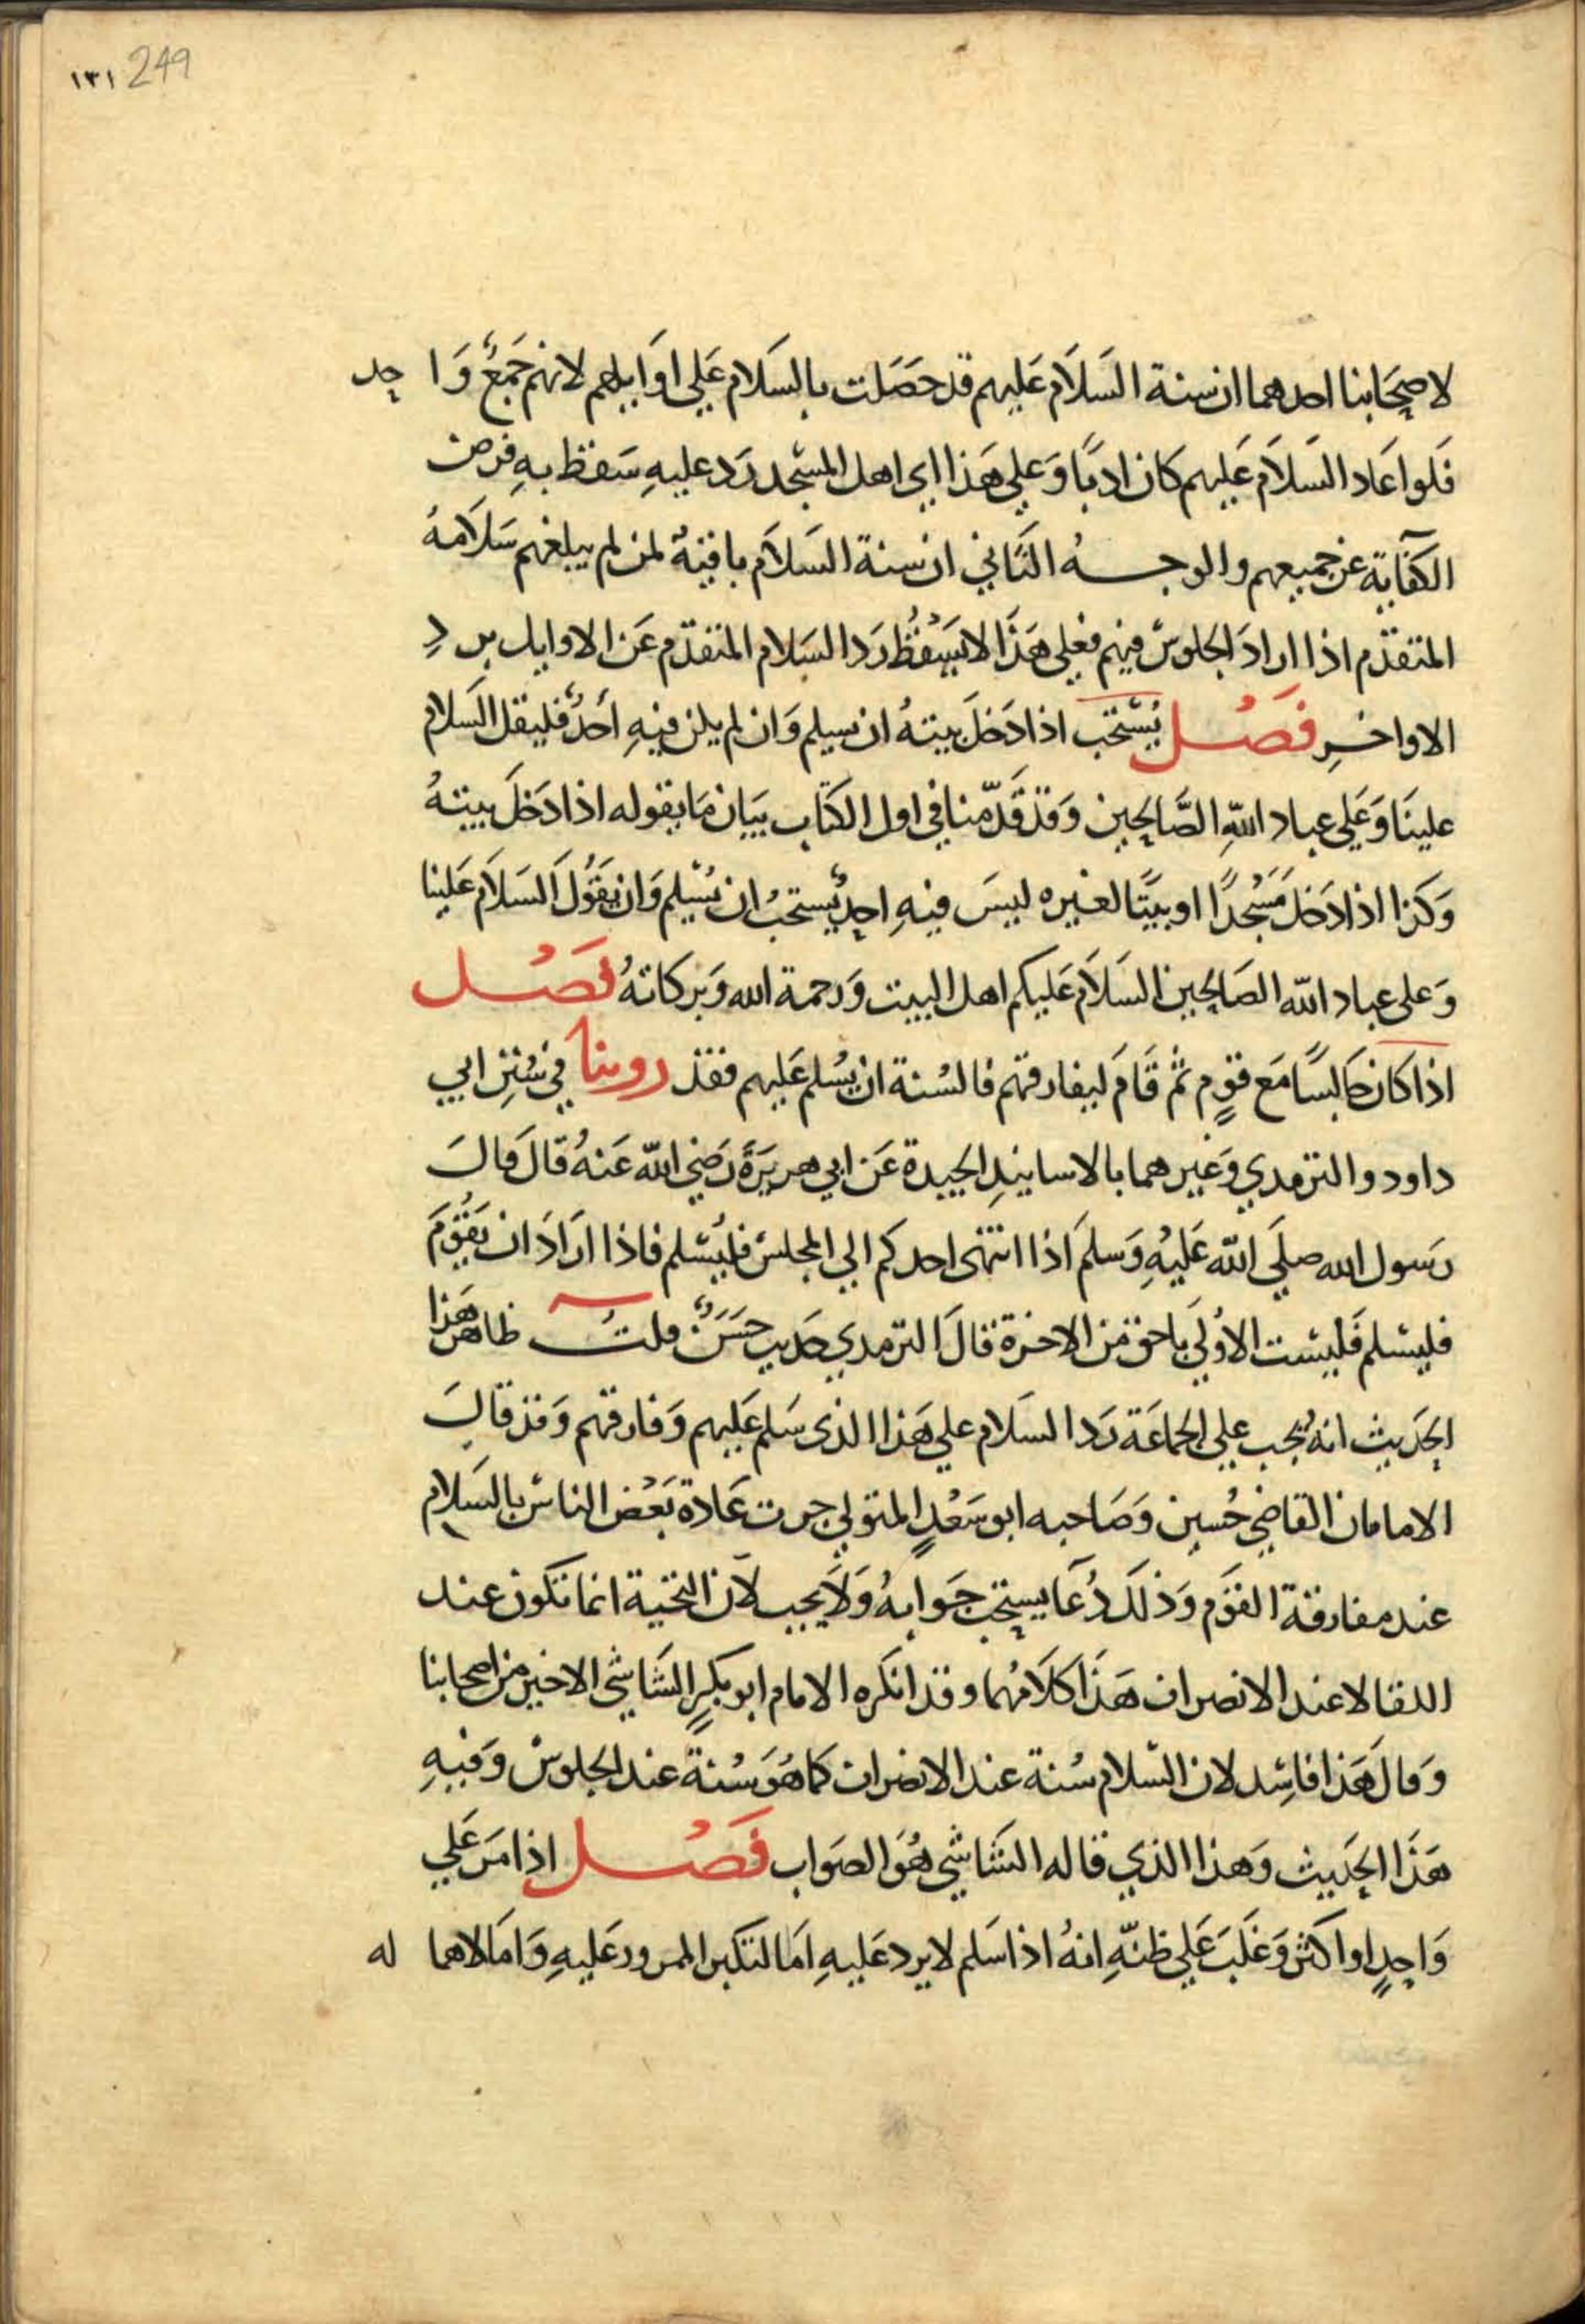 ١٣١ 249
لاصحَابنا احدهما ان سنة السَلَام عَليهم قد حصَلت بالسَلام عَلي اوَايلهم لانهم جَمعٌ وَاحد
فَلو اعَاد السَلاَم عَليهم كان ادبًا وَعَلي هَذا اي اهل المسْجد رَد عليهِ سَقط بهِ فرض
الكفَاية عَن جميعهم والوجــهُ الثَاني ان سنة السَلاَم باقيَةٌ لمن لم يبلغهم سَلاَمهُ
المتقدّم اذا ارادَ الجلوس فيهم فعَلي هَذَا لا يَسْقُط رَد السَلام المتقدّم عَن الاوايل برد
الاواخرِ فَصْــل يُسْتَحَب اذا دَخلَ بيتهُ ان يسلم وَان لم يكن فيهِ احَدٌ فليقل السَلام
علينَا وَعَلي عباد اللهِ الصَّالحِين وَقد قَدَّمنا في اول الكتَاب بيَان مَا يقوله اذا دَخلَ بيتهُ
وَكذا اذا دَخلَ مَسْجدًا او بيتًا لغيره ليسَ فيهِ احدٌ يُستحبُ ان يُسَلم وَان يقُولَ السَلاَم عَلينا
وَعلى عباد الله الصَالحين السَلاَم عَليكم اهل البيت وَرحمة الله وَبركاتهُ فصْــل
اذا كان جَالسًا مَع قومٍ ثم قَامَ ليفارقهم فالسُنة ان يُسَلم عَليهم فقد روينا في سُنَنِ ابي
داود والترمدي وَغَيرهما بالاسانيدِ الجيدة عَن ابي هريرَةَ رَضي الله عَنهُ قالَ قالَ
رَسول الله صلَى الله عَليهِ وَسلمَ اذا انتهى احدكم الي المجلس فليُسَلم فاذا ارَادَ ان يَقُومَ
فليسَلم فَليسَت الاوُلي باحق من الاخرة قالَ الترمدي حَديث حسَنٌ قلت ظاهر هَذا
الحَديث انهُ يُجب علي الجماعَة رَد السَلام علي هَذا الذى سَلم عَليهم وَفارقهم وَقد قالَ
الامامان القاضي حُسين وَصَاحبه ابو سَعْدٍ المتولي جرت عَادة بَعْض الناس بالسَلام
عند مفارقة القَوَم وَذلكَ دُعَا يستحب جَوابهُ وَلاَ يجب لاَن التحَية انما تكون عند
اللقا لا عند الانصراف هَذَا كلاَمُهما وقد انكره الامام ابو بَكرٍ الشَاشي الاخير من اصحابنا
وَقالَ هَذا فاسِد لان السّلام سُنة عند الانصراف كما هُوَ سُنةٌ عند الجلوس وَفيهِ
هَذَا الحَديث وَهذا الذي قاله الشَاشي هُوَ الصَواب فَصْــل اذا مَرَ عَلي
وَاحدٍ او اكثر وَغَلَبَ عَلي ظنّهِ انهُ اذا سَلم لا يرد عَليهِ امَا لتكبر الممرور عَليهِ وَامَا لاهماله